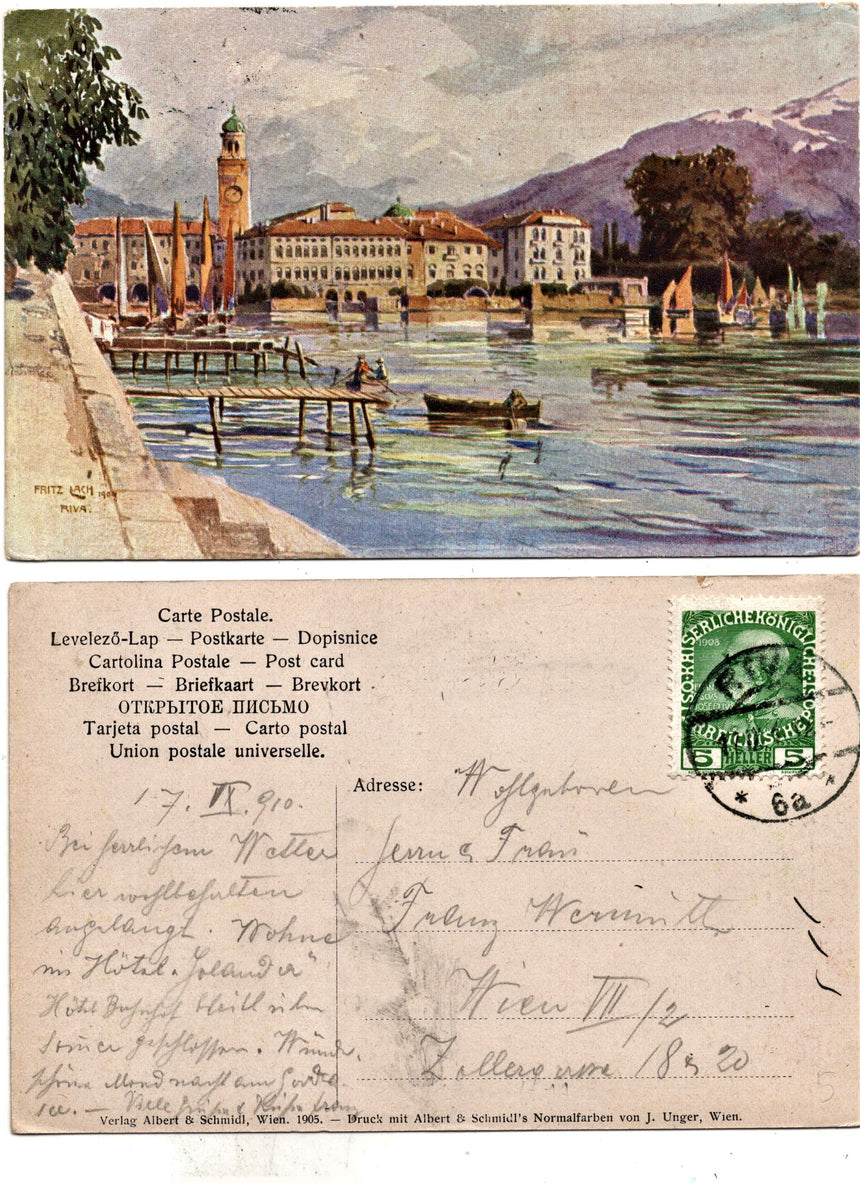 FRITZ LACH 1909
RIVA.
Carte Postale.
Levelező-Lap — Postkarte — Dopisnice
Cartolina Postale — Post card
Brefkort — Briefkaart — Brevkort
ОТКРЫТОЕ ПИСЬМО
Tarjeta postal — Carto postal
Union postale universelle.
KAISERLICHEKÖNIGLICHE
1908
5 HELLER 5
RIVA
* 6a *
Adresse: Wohlgeboren
Herrn & Frau
Franz
Wien VII/2
Zollergasse 18 & 20
17. IX. 910.
Bei herrlichem Wetter
hier wohlbehalten
angelangt. Wohne
im Hôtel
Hôtel Bahnhof bleibt
geschlossen. Wunder-
schöne Mondnacht am Garda
Viele Grüße & Küsse Franz
Verlag Albert & Schmidl, Wien. 1905. — Druck mit Albert & Schmidl's Normalfarben von J. Unger, Wien.
5